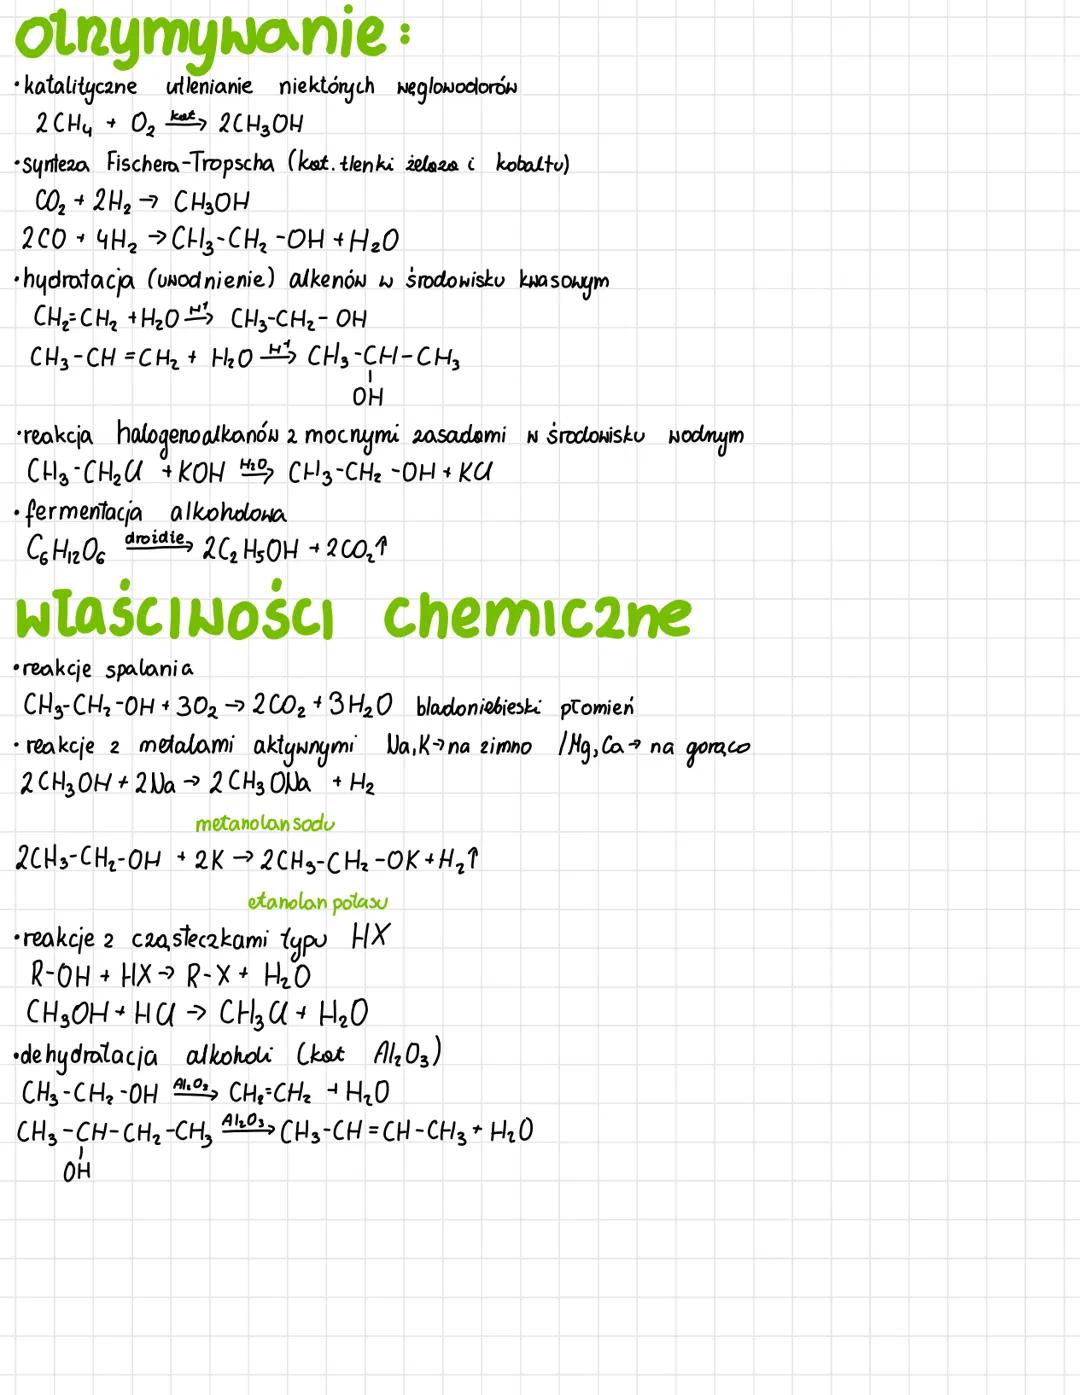 otrzymywanie:
•katalityczne utlenianie niektórych węglowodorów
2CH₄ + O₂ kat.→ 2CH₃OH
•synteza Fischera-Tropscha (kat. tlenki żelaza i kobaltu)
CO₂ + 2H₂ → CH₃OH
2CO + 4H₂ → CH₃-CH₂-OH + H₂O
•hydratacja (uwodnienie) alkenów w środowisku kwasowym
CH₂=CH₂ + H₂O H⁺→ CH₃-CH₂-OH
CH₃-CH=CH₂ + H₂O H⁺→ CH₃-CH-CH₃
OH
•reakcja halogenoalkanów z mocnymi zasadami w środowisku wodnym
CH₃-CH₂Cl + KOH H₂O→ CH₃-CH₂-OH + KCl
•fermentacja alkoholowa
C₆H₁₂O₆ drożdże→ 2C₂H₅OH + 2CO₂↑
właściwości chemiczne
•reakcje spalania
CH₃-CH₂-OH + 3O₂ → 2CO₂ + 3H₂O bladoniebieski płomień
•reakcje z metalami aktywnymi Na,K→na zimno /Mg,Ca→ na gorąco
2CH₃OH + 2Na → 2CH₃ONa + H₂
metanolan sodu
2CH₃-CH₂-OH + 2K → 2CH₃-CH₂-OK + H₂↑
etanolan potasu
•reakcje z cząsteczkami typu HX
R-OH + HX → R-X + H₂O
CH₃OH + HCl → CH₃Cl + H₂O
•dehydratacja alkoholi (kat Al₂O₃)
CH₃-CH₂-OH Al₂O₃→ CH₂=CH₂ + H₂O
CH₃-CH-CH₂-CH₃ Al₂O₃→ CH₃-CH=CH-CH₃ + H₂O
OH